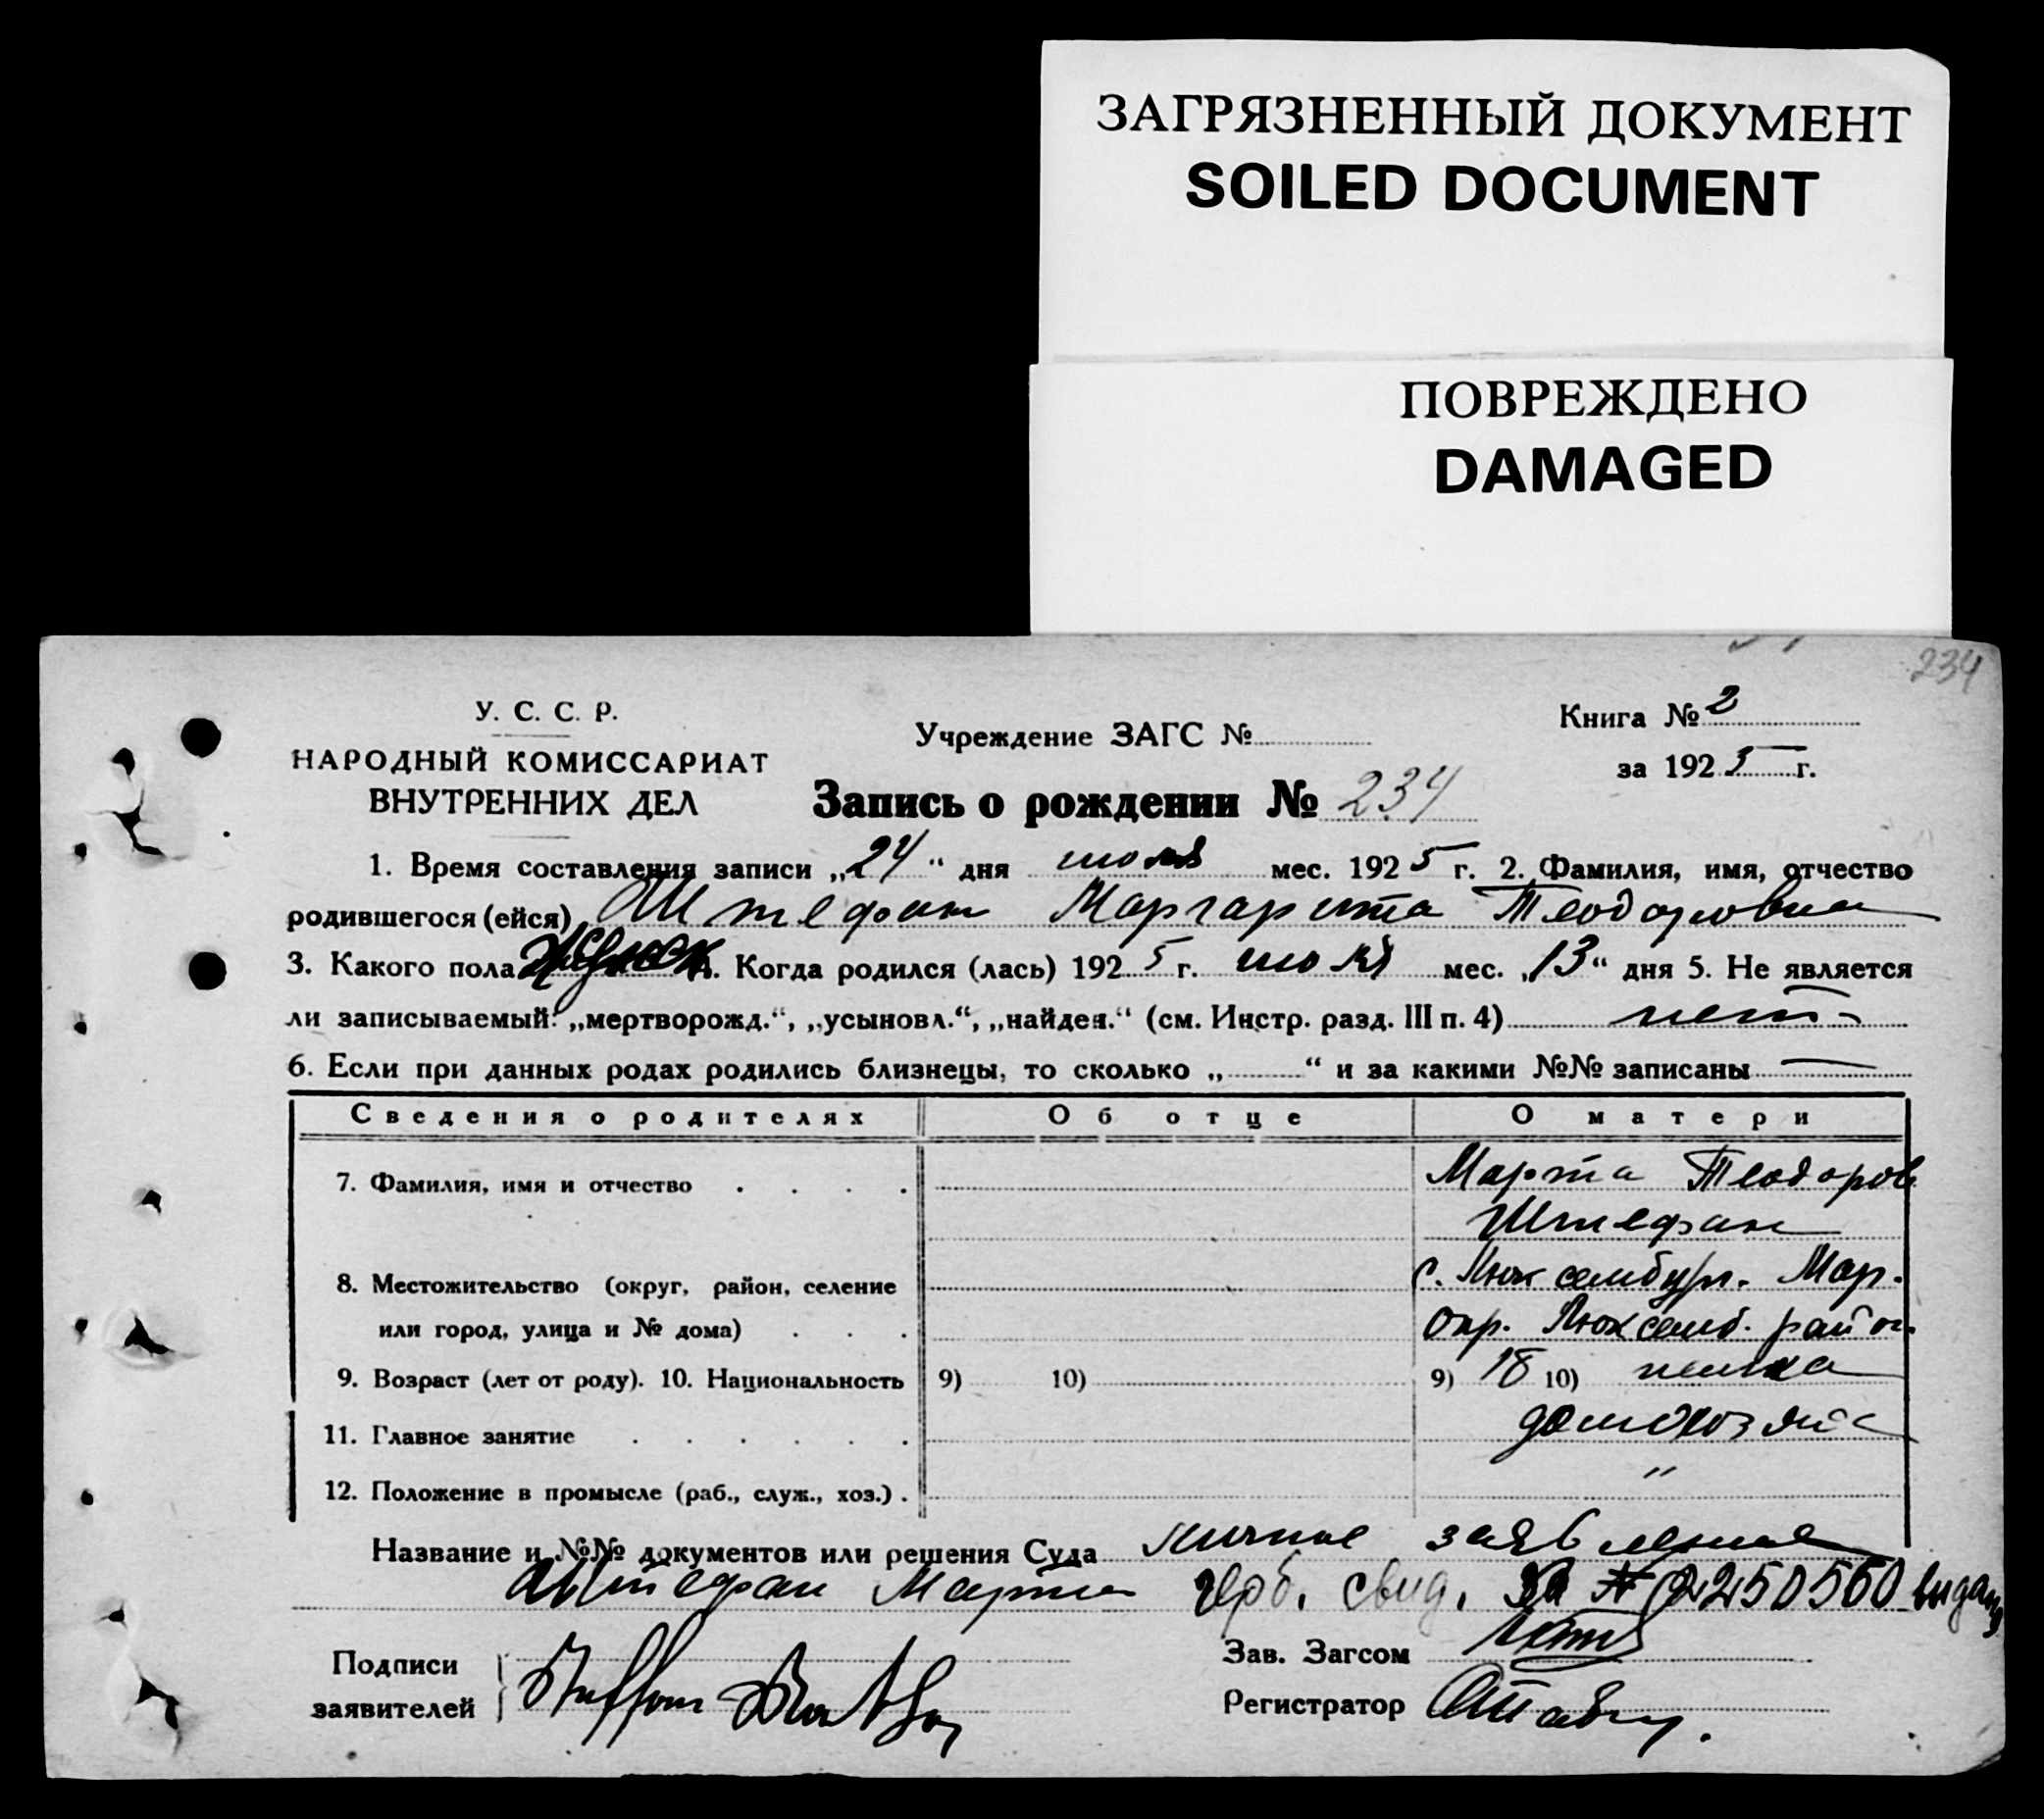 ЗАГРЯЗНЕННЫЙ ДОКУМЕНТ
SOILED DOCUMENT
ПОВРЕЖДЕНО
DAMAGED
234
У. С. С. Р.
НАРОДНЫЙ КОМИССАРИАТ
ВНУТРЕННИХ ДЕЛ
Учреждение ЗАГС №
Книга № 2
за 1925 г.
Запись о рождении № 234
1. Время составления записи „24“ дня июля мес. 1925 г. 2. Фамилия, имя, отчество
родившегося (ейся) Штефан Маргарита Теодоровна
3. Какого пола женск 4. Когда родился (лась) 1925 г. июля мес. „13“ дня 5. Не является
ли записываемый: „мертворожд.“, „усыновл.“, „найден.“ (см. Инстр. разд. III п. 4) нет
6. Если при данных родах родились близнецы, то сколько „ “ и за какими №№ записаны —
Сведения о родителях Об отце О матери
7. Фамилия, имя и отчество Марта Теодоров
Штефан
8. Местожительство (округ, район, селение с. Люксембург. Мар.
или город, улица и № дома) окр. Люксемб. район
9. Возраст (лет от роду). 10. Национальность 9) 10) 9) 18 10) немка
11. Главное занятие домохозяйс
12. Положение в промысле (раб., служ., хоз.) "
Название и №№ документов или решения Суда личное заявление
Штефан Марты герб. свид. за № 2250560 выдано
Подписи
заявителей
Зав. Загсом
Регистратор